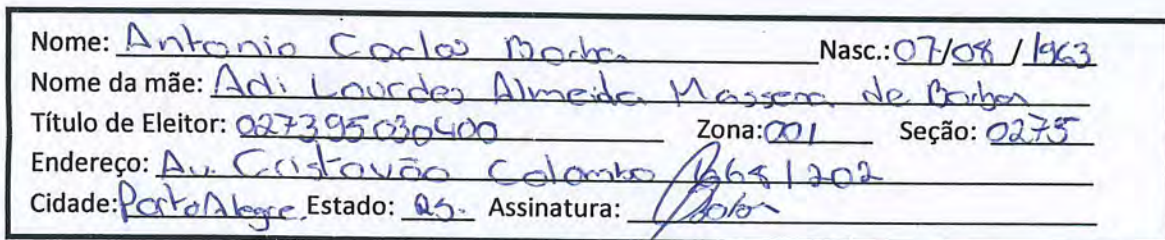 Nome: Antonio Carlos Borba Nasc.: 07/08/1963
Nome da mãe: Adi Lourdes Almeida Massena de Borba
Título de Eleitor: 027395030400 Zona: 001 Seção: 0275
Endereço: Av. Cristovão Colombo /202
Cidade: Porto Alegre. Estado: RS. Assinatura: